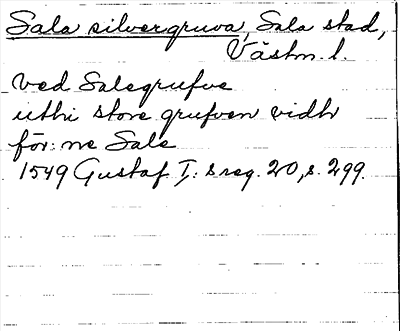 Sala silvergruva, Sala stad,
Västm. l.
ved Salegrufve
uthi store grufven vidh
för:ne Sale
1549 Gustaf I:s reg. 20, s. 299.